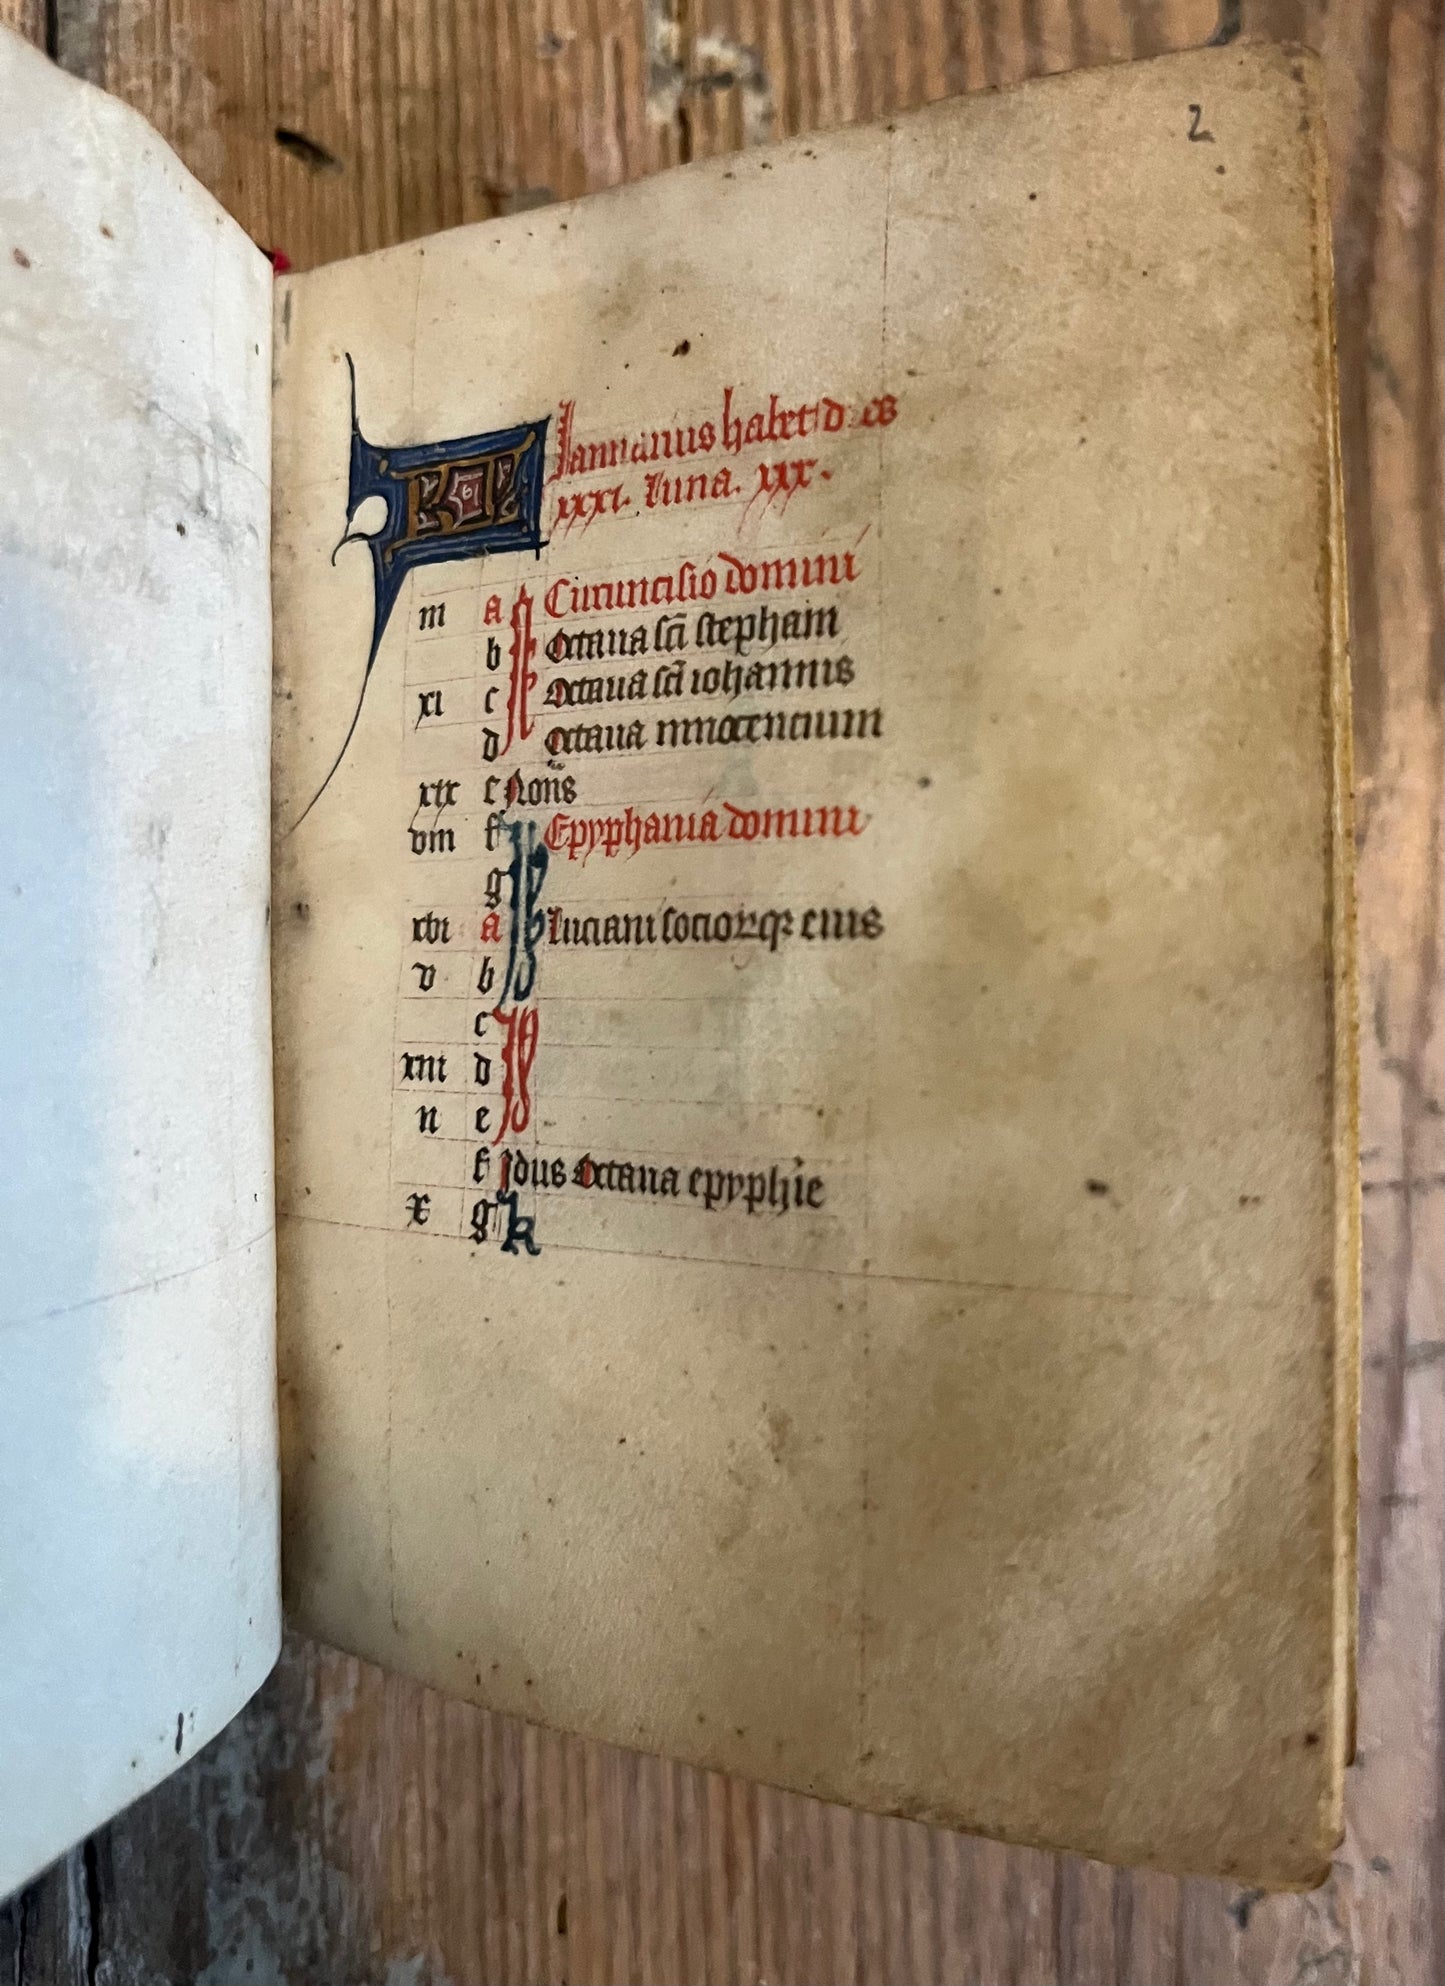 2
Januarius habet dies
xxxi. Luna. xxx.
iii a Circuncisio domini
b Octaua sci stephani
xi c Octaua sci iohannis
d Octaua innocencium
xix e Non̄s
viii f Epyphania domini
g
xvi a Luciani sociorqȝ eius
v b
c
xiii d
ii e
f Idus Octaua epyphie
x g k